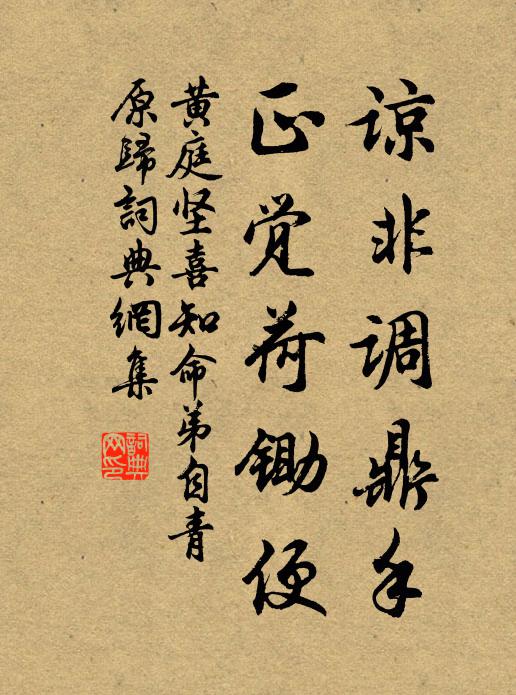 谅非调鼎手
正觉荷锄便
黄庭坚喜知命弟自青
原歸詞典網集
詞典
网印